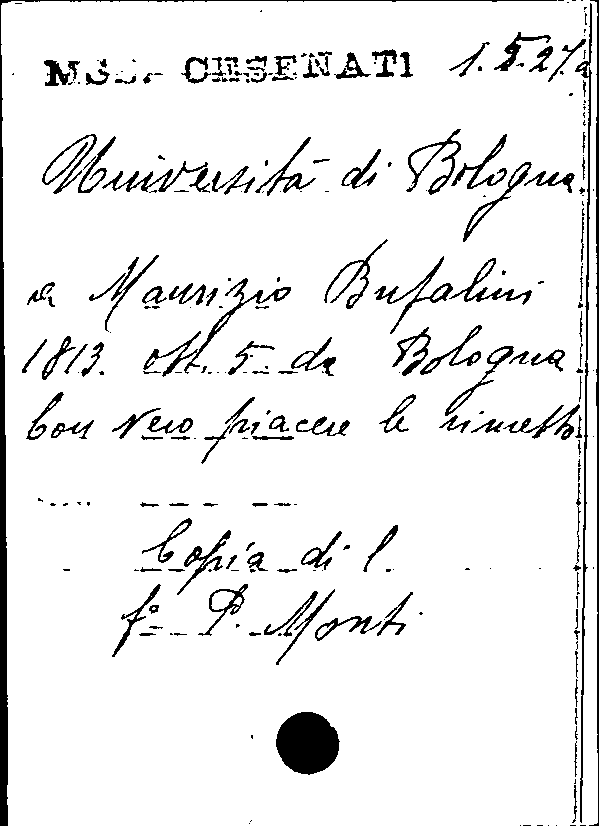 MSS. CESENATI 1.5.27.a
Università di Bologna
a Maurizio Bufalini
1813. ott. 5 da Bologna
Con vero piacere le rimetto
Copia di l.
fº P. Monti